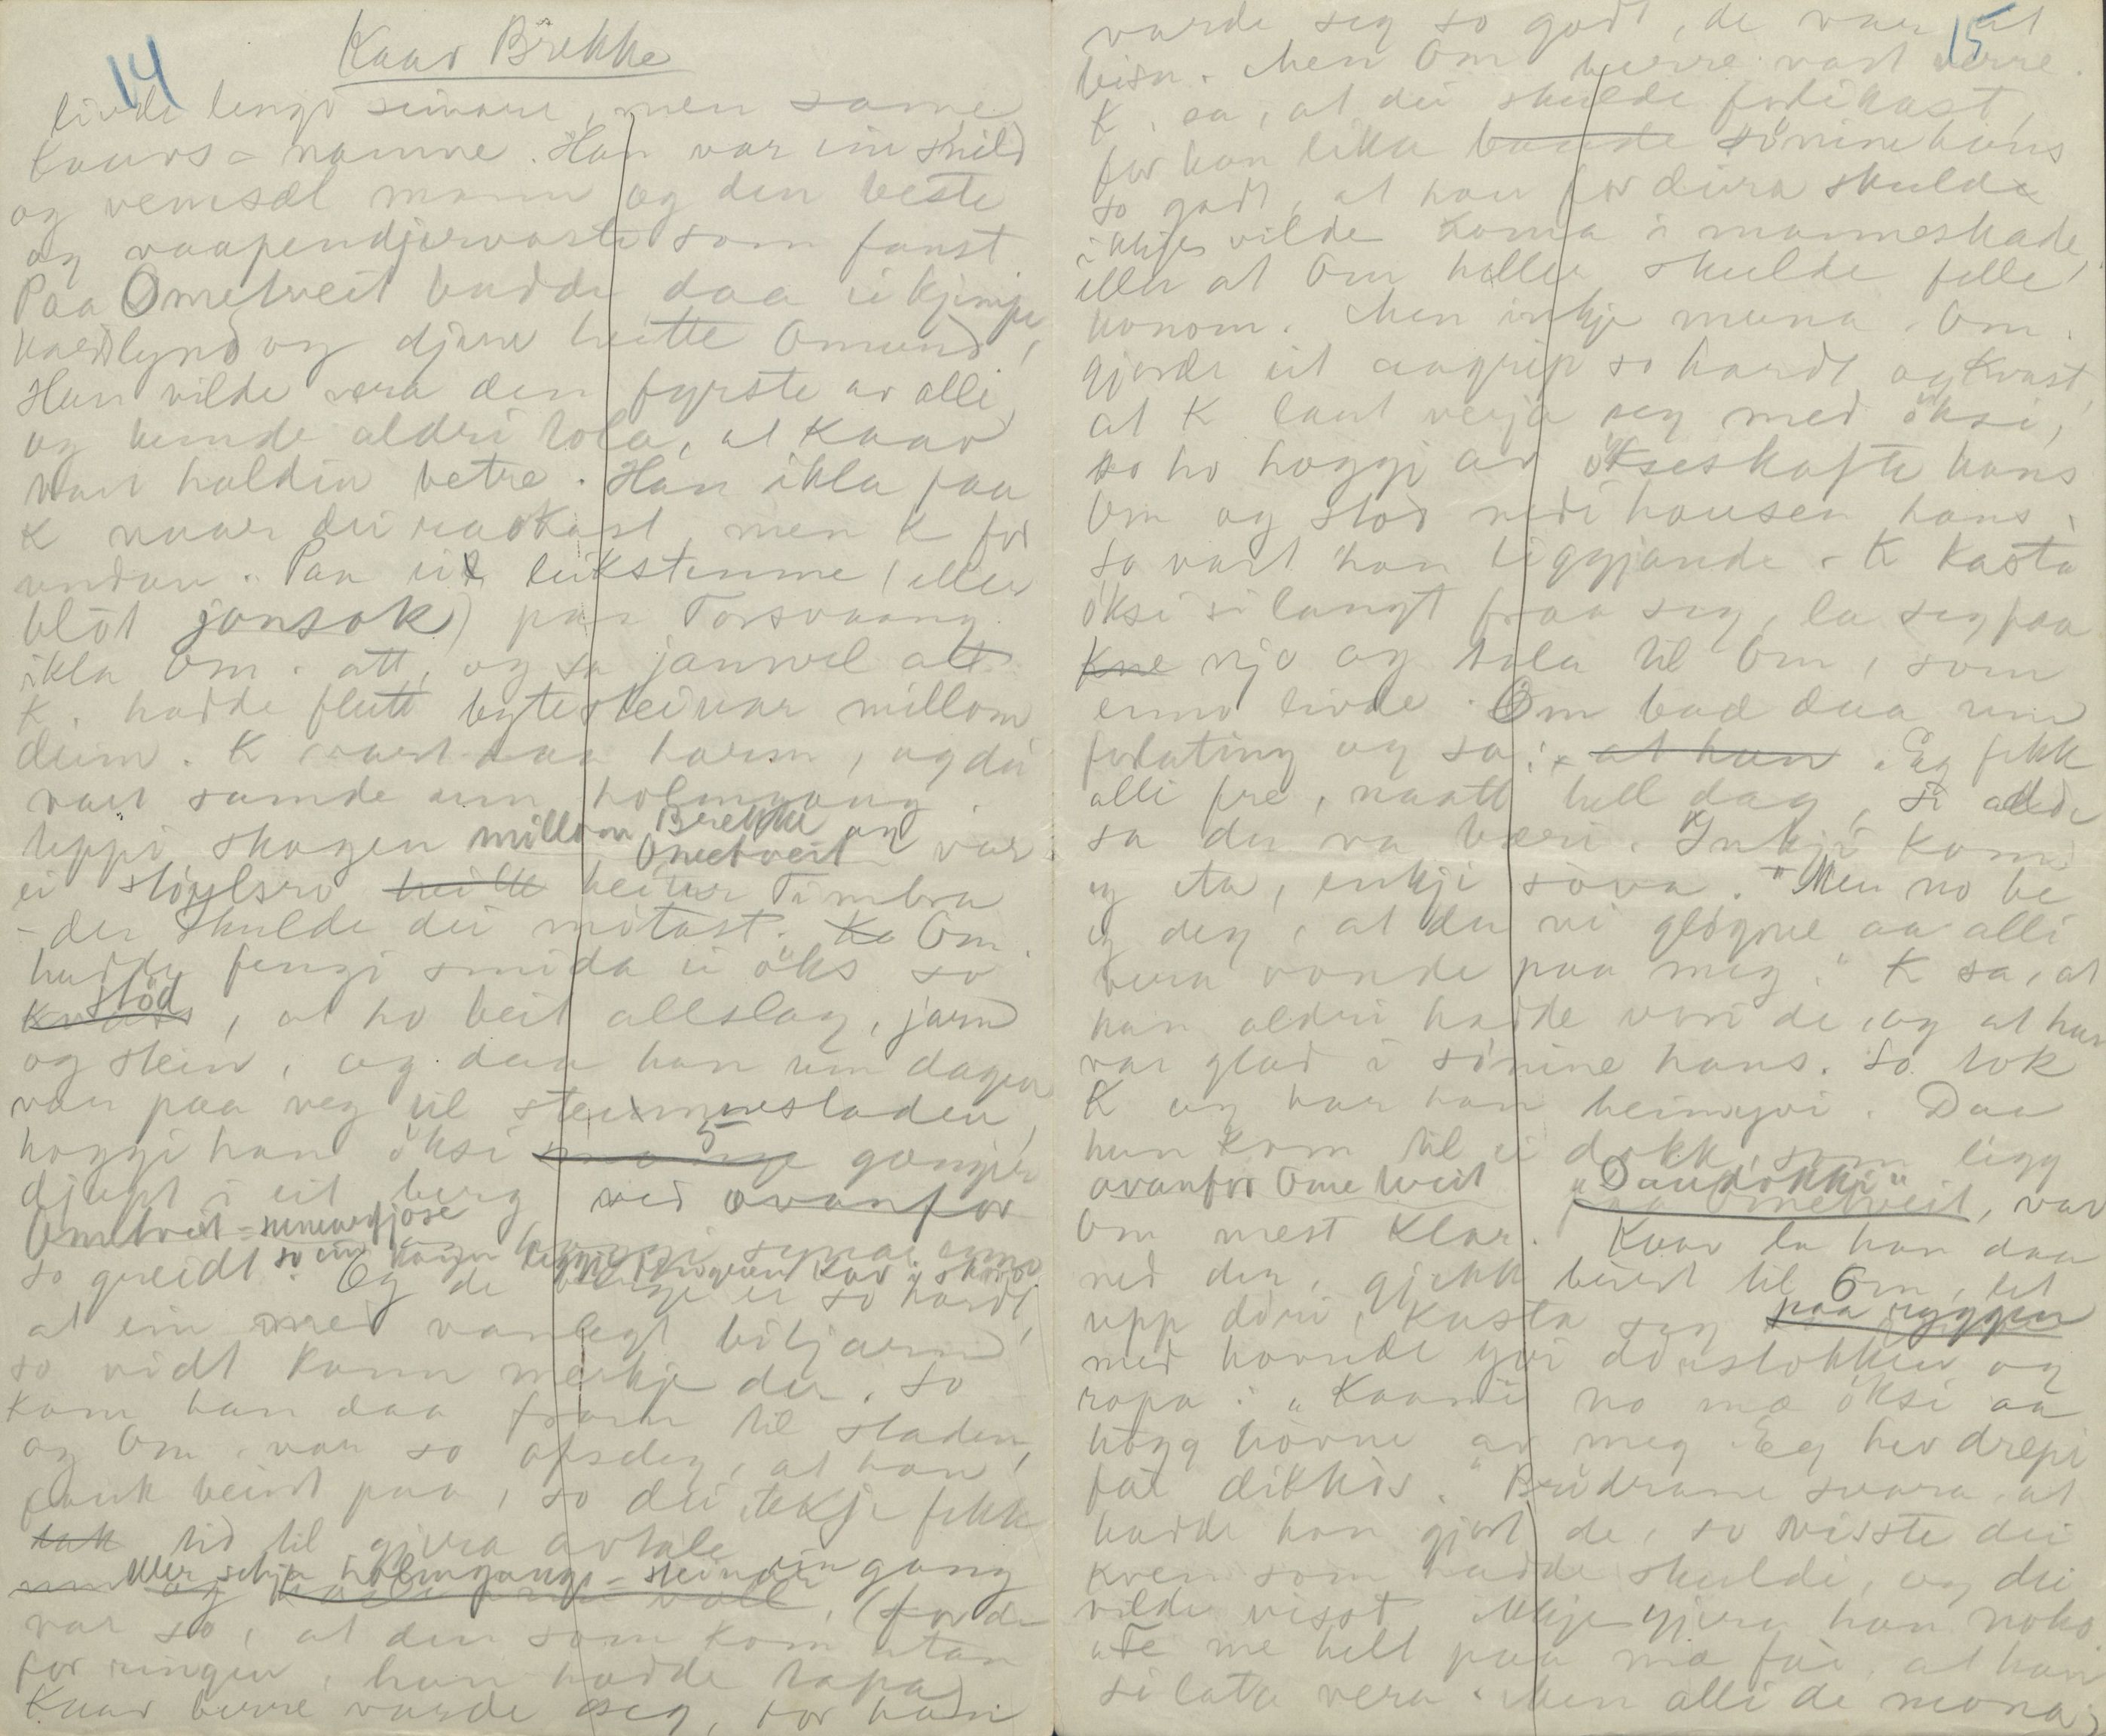 14
Kaar Brekke
livde lengr seinare, men same
Kaars-namne. Han var ein snild
og vensæl mann og den beste
og vaapendjervaste som fanst.
Paa Ometveit budde daa ei kjempe
hardlynd og djerv heitte Omund,
Han vilde vera den fyrste av alli,
og kunde aldri tola, at Kaar
vart haldin betre. Han ikla paa
K naar dei raakast, men K for
undan. Paa eit leikstemne (eller
blót jonsok) paa Torsvaang
ikla Om. att, og sa jamvel att
K. hadde flutt bytesteinar millom
deim. K vart daa harm, og dei
vart samde um holmgang.
Uppi skogen millom Brekke og
Ometveit var
ei støylsro heitte heiter Timbra
- der skulde dei møtast. Ka Om.
hadde fengi smida ei öks so
kvass stöd, at ho beit allslag, jarn
og stein, og daa han um dagen
var paa veg til stemnestaden,
hoggi han öksi mange 5 gongir
djupt i eit berg ved ovanfor
Ometveit-sumarfjøse
so greidt so ein kann
Og de berge er so hardt,
at ein med vanlegt biljarn
so vidt kann merkje der. So
kom han daa fram til staden,
og Om. var so opsdeg, at han
fauk beint paa, so dei ikkje fekk
tak tid til gjera avtale
eller setja holmgangs-steinar ein gong
(for de
var so, at den som kom utan
for ringen, han hadde tapa)
Kaar berre varde seg, for han
15
varde seg so godt, de var at
beisn. Men Om berre vart verre.
K. sa, at dei skulde forlikast,
for han lika baade sønine hans
so godt, at han for deira skuld
ikkje vilde koma i manneskade,
eller at Om heller skulde felle
honom. Men inkje muna. Om.
gjorde eit aagrip so hardt og kvast,
at K laut verja seg med öksi,
so ho hoggi av økseskafte hans
Om og stod nedi hausen hans.
So vart han liggjande. K kasta
öksi si langt fraa seg, la seg paa
kne njo og tala til Om, som
enno livde. Om bad daa um
forlating og sa: at han "Eg fekk
alli fre, naatt hell dag, so alle
sa du va bæri. Inkji kom
eg eta, inkji sova. "Men no be
eg deg, at du vi gløgme aa alli
vera vonde paa meg." K sa, at
han aldri hadde vori de, og at han
var glad i sønine hans. So tok
K og bar han heimyvi. Daa
han kom til ei dokk, som ligg
ovanfor Ometveit "Daudokki"
paa Ometveit, var
Om mest klar. Kaar la han daa
ned der, gjekk beint til Om, let
upp döri, kasta seg paa ryggen
med hovude yvi dørstokken og
ropa: "Kaami no mæ öksi aa
högg hovue av meg. Eg hev drepi
fai dikkos." Brødrane svara, at
hadde han gjort de, so visste dei
kven som hadde skuldi, og dei
vilde visst ikkje gjera han noko.
ate me helt paa mæ fai, at han
si lata vera. Men alli de mona,